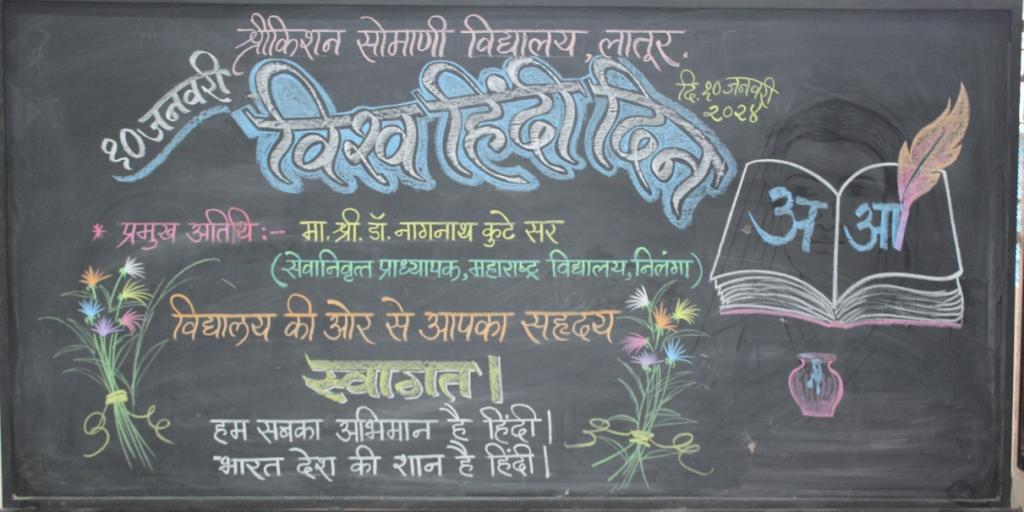 श्रीकिशन सोमाणी विद्यालय, लातूर.
१० जनवरी
विश्व हिंदी दिन
दि. १० जनवरी
२०२४
* प्रमुख अतिथि :- मा. श्री. डॉ. नागनाथ कुटे सर
(सेवानिवृत्त प्राध्यापक, महाराष्ट्र विद्यालय, निलंगा)
विद्यालय की ओर से आपका सहृदय
स्वागत।
हम सबका अभिमान है हिंदी।
भारत देश की शान है हिंदी।
अ आ